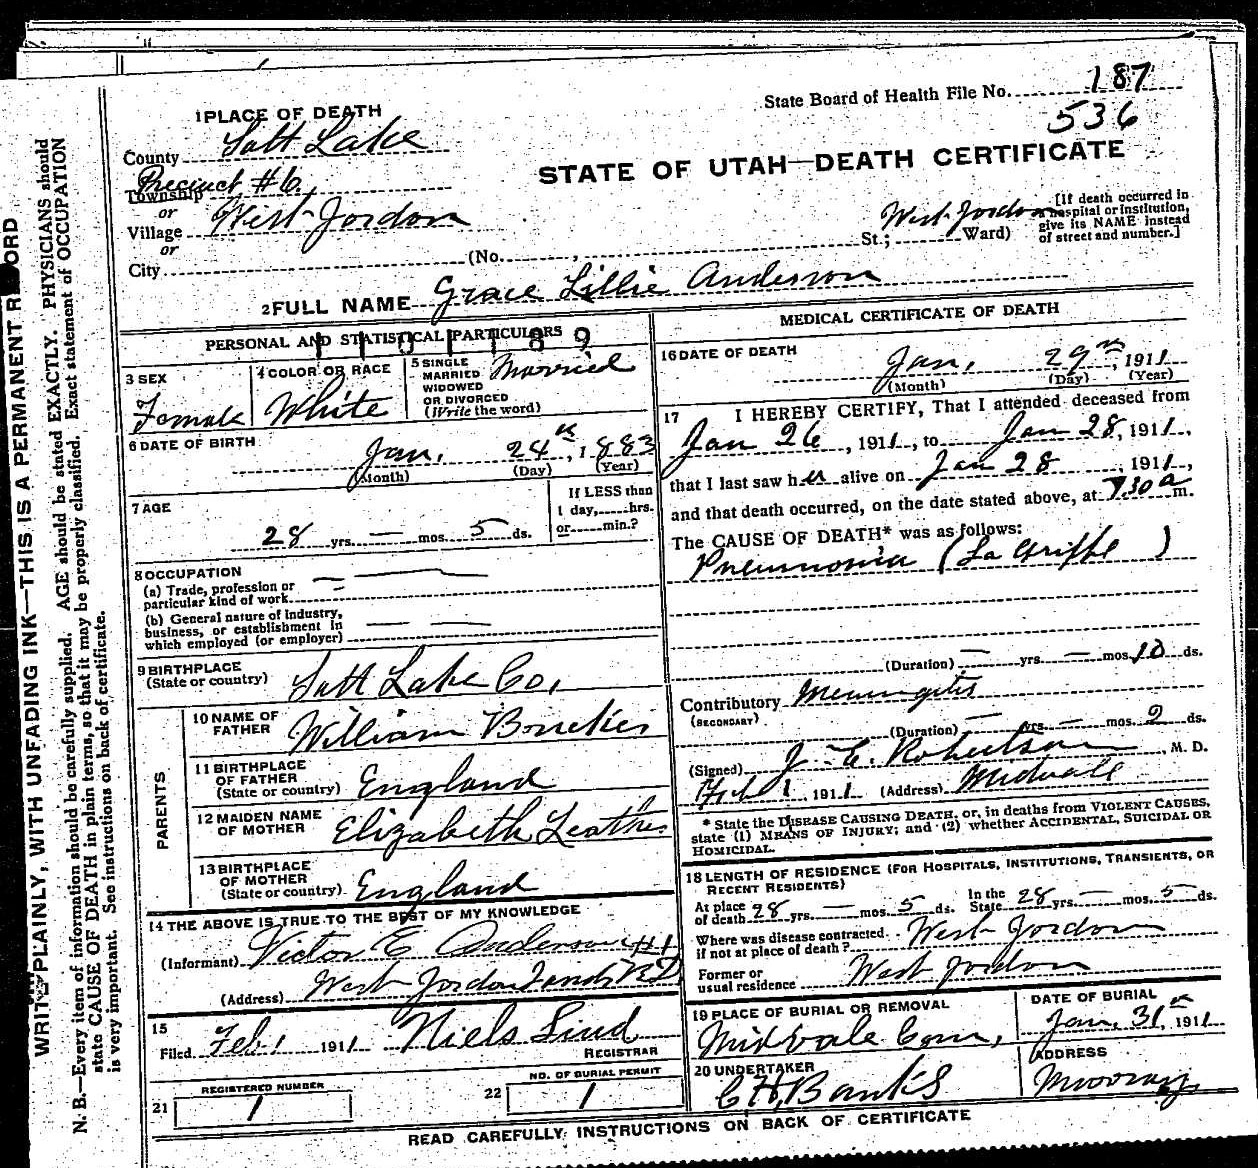 State Board of Health File No. 187
536
1 PLACE OF DEATH
County Salt Lake
STATE OF UTAH—DEATH CERTIFICATE
Precinct #6,
Township
or
Village West Jordon
or
City
(No.
West Jordon
St.; Ward)
[If death occurred in
a hospital or institution,
give its NAME instead
of street and number.]
2 FULL NAME Grace Lillie Anderson
PERSONAL AND STATISTICAL PARTICULARS
1101189
3 SEX
Female
4 COLOR OR RACE
White
5 SINGLE
MARRIED
WIDOWED
OR DIVORCED
(Write the word)
Married
6 DATE OF BIRTH
Jan. 24th, 1883
(Month) (Day) (Year)
7 AGE
28 yrs. — mos. 5 ds.
If LESS than
1 day, hrs.
or min.?
8 OCCUPATION
(a) Trade, profession or
particular kind of work
(b) General nature of industry,
business, or establishment in
which employed (or employer)
9 BIRTHPLACE
(State or country) Salt Lake Co,
PARENTS
10 NAME OF
FATHER William
11 BIRTHPLACE
OF FATHER
(State or country) England
12 MAIDEN NAME
OF MOTHER Elizabeth
13 BIRTHPLACE
OF MOTHER
(State or country) England
14 THE ABOVE IS TRUE TO THE BEST OF MY KNOWLEDGE
(Informant) Victor E Anderson #1
(Address) West Jordon
15
Filed Feb 1 1911 Niels Lind
REGISTRAR
21
REGISTERED NUMBER
1
22
NO. OF BURIAL PERMIT
1
MEDICAL CERTIFICATE OF DEATH
16 DATE OF DEATH
Jan, 29th, 1911
(Month) (Day) (Year)
17 I HEREBY CERTIFY, That I attended deceased from
Jan 26, 1911, to Jan 28, 1911,
that I last saw her alive on Jan 28, 1911,
and that death occurred, on the date stated above, at 7.30 a m.
The CAUSE OF DEATH* was as follows:
Pneumonia (La Grippe)
(Duration) — yrs. — mos. 10 ds.
Contributory Meningitis
(SECONDARY)
(Duration) — yrs. — mos. 2 ds.
(Signed) J. E. Robertson, M. D.
Feb 1, 1911 (Address) Midvale
* State the DISEASE CAUSING DEATH, or, in deaths from VIOLENT CAUSES,
state (1) MEANS OF INJURY; and (2) whether ACCIDENTAL, SUICIDAL OR
HOMICIDAL.
18 LENGTH OF RESIDENCE (FOR HOSPITALS, INSTITUTIONS, TRANSIENTS, OR
RECENT RESIDENTS)
At place
of death 28 yrs. — mos. 5 ds.
In the
State 28 yrs. — mos. 5 ds.
Where was disease contracted
if not at place of death? West Jordon
Former or
usual residence West Jordon
19 PLACE OF BURIAL OR REMOVAL
Midvale Cem,
DATE OF BURIAL
Jan, 31st, 1911
20 UNDERTAKER
C H, Banks
ADDRESS
Murray
READ CAREFULLY INSTRUCTIONS ON BACK OF CERTIFICATE
WRITE PLAINLY, WITH UNFADING INK—THIS IS A PERMANENT RECORD
N. B.—Every item of information should be carefully supplied. AGE should be stated EXACTLY. PHYSICIANS should
state CAUSE OF DEATH in plain terms, so that it may be properly classified. Exact statement of OCCUPATION
is very important. See instructions on back of certificate.